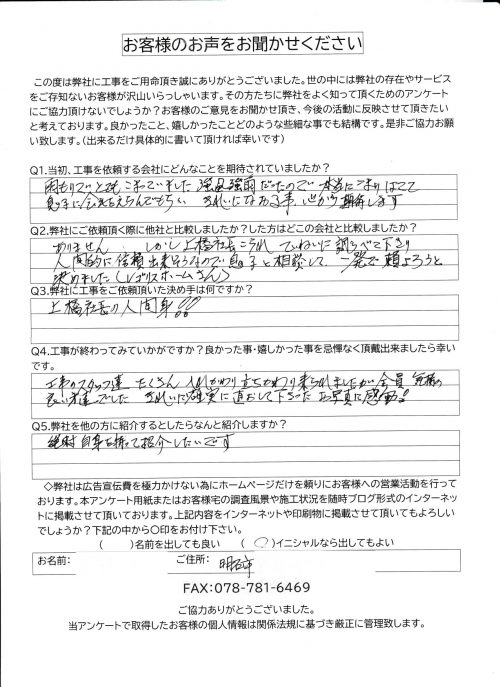 お客様のお声をお聞かせください
この度は弊社に工事をご用命頂き誠にありがとうございました。世の中には弊社の存在やサービス
をご存知ないお客様が沢山いらっしゃいます。その方たちに弊社をよく知って頂くためのアンケート
にご協力頂けないでしょうか？お客様のご意見をお聞かせ頂き、今後の活動に反映させて頂きたい
と考えております。良かったこと、嬉しかったことどのような些細な事でも結構です。是非ご協力お願
い致します。（出来るだけ具体的に書いて頂ければ幸いです）
Q1.当初、工事を依頼する会社にどんなことを期待されていましたか？
雨もりでとてもこまっていました 強風強雨だったので 本当にこまりはてて
息子に会社をえらんでもらい きれいになおる事 心から期待します
Q2.弊社にご依頼頂く際に他社と比較しましたか？した方はどこの会社と比較しましたか？
ありません しかし上橋社長こられ ていねいに調らべて下さり
人間的に信頼出来そうなので息子と相談して 一発で頼ようと
決めました（レゴリスホームさん）
Q3.弊社に工事をご依頼頂いた決め手は何ですか？
上橋社長の人間身!!
Q4.工事が終わってみていかがですか？良かった事・嬉しかった事を忌憚なく頂戴出来ましたら幸い
です。
工事のスタッフ達 たくさん 入れかわり立ちかわり来られましたが全員
良い者達でした きれいに確実に直おして下さった お写真に感動!
Q5.弊社を他の方に紹介するとしたらなんと紹介しますか？
絶対自身を持って紹介したいです
◇弊社は広告宣伝費を極力かけない為にホームページだけを頼りにお客様への営業活動を行って
おります。本アンケート用紙またはお客様宅の調査風景や施工状況を随時ブログ形式のインターネッ
トに掲載させて頂いております。上記内容をインターネットや印刷物に掲載させて頂いてもよろしい
でしょうか？下記の中から○印をお付け下さい。
（ ）名前を出しても良い （○）イニシャルなら出してもよい
お名前： ご住所： 明石市
FAX：078-781-6469
ご協力ありがとうございました。
当アンケートで取得したお客様の個人情報は関係法規に基づき厳正に管理致します。